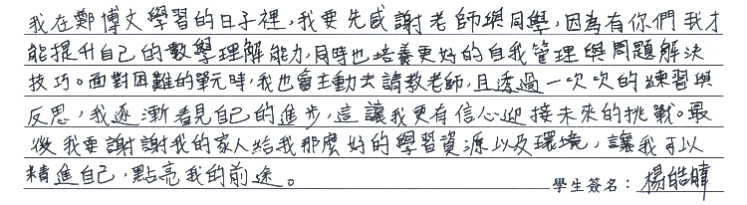 我在鄭博文學習的日子裡,我要先感謝老師與同學,因為有你們我才
能提升自己的數學理解能力,同時也培養更好的自我管理與問題解決
技巧。面對困難的單元時,我也會主動去請教老師,且透過一次次的練習與
反思,我逐漸看見自己的進步,這讓我更有信心迎接未來的挑戰。最
後我要謝謝我的家人給我那麼好的學習資源以及環境,讓我可以
精進自己,點亮我的前途。
學生簽名:楊皓暐